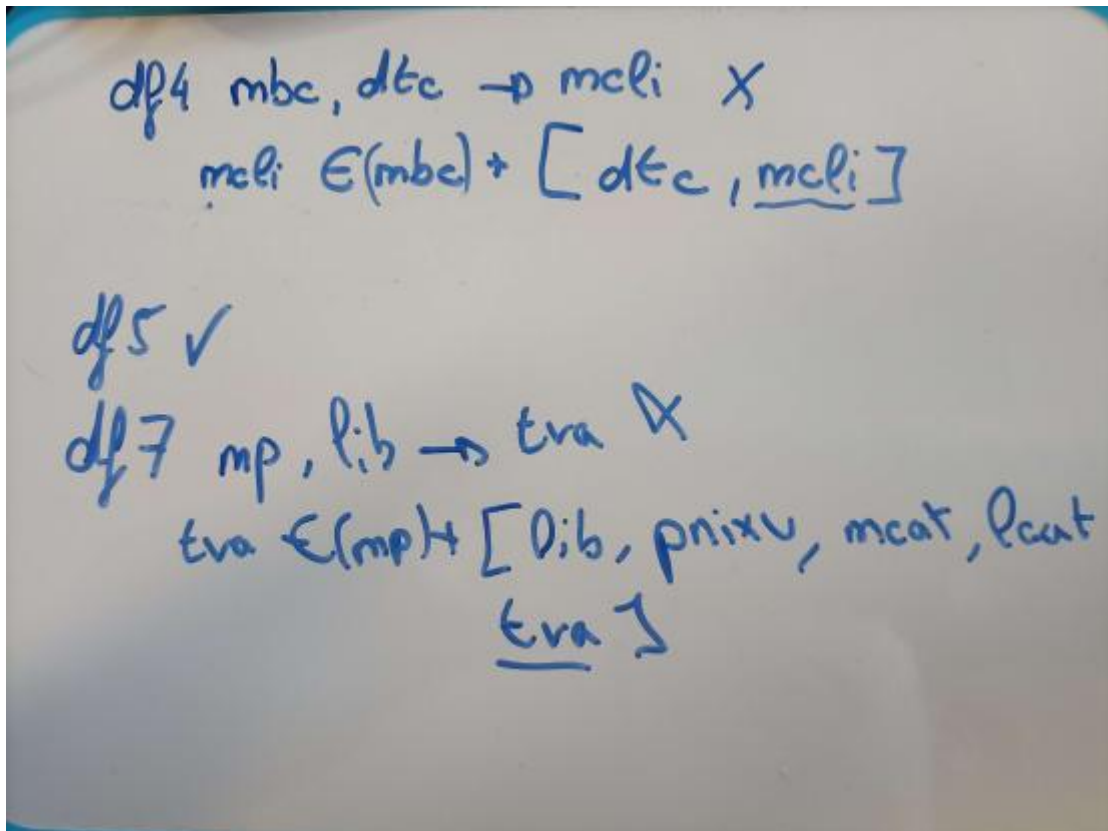 df4 mbc, dtc → mcli X
mcli ∈(mbc)+ [dtc, mcli]
df5 ✓
df7 mp, lib → tva X
tva ∈(mp)+ [lib, pnixv, mcat, lcat
tva]